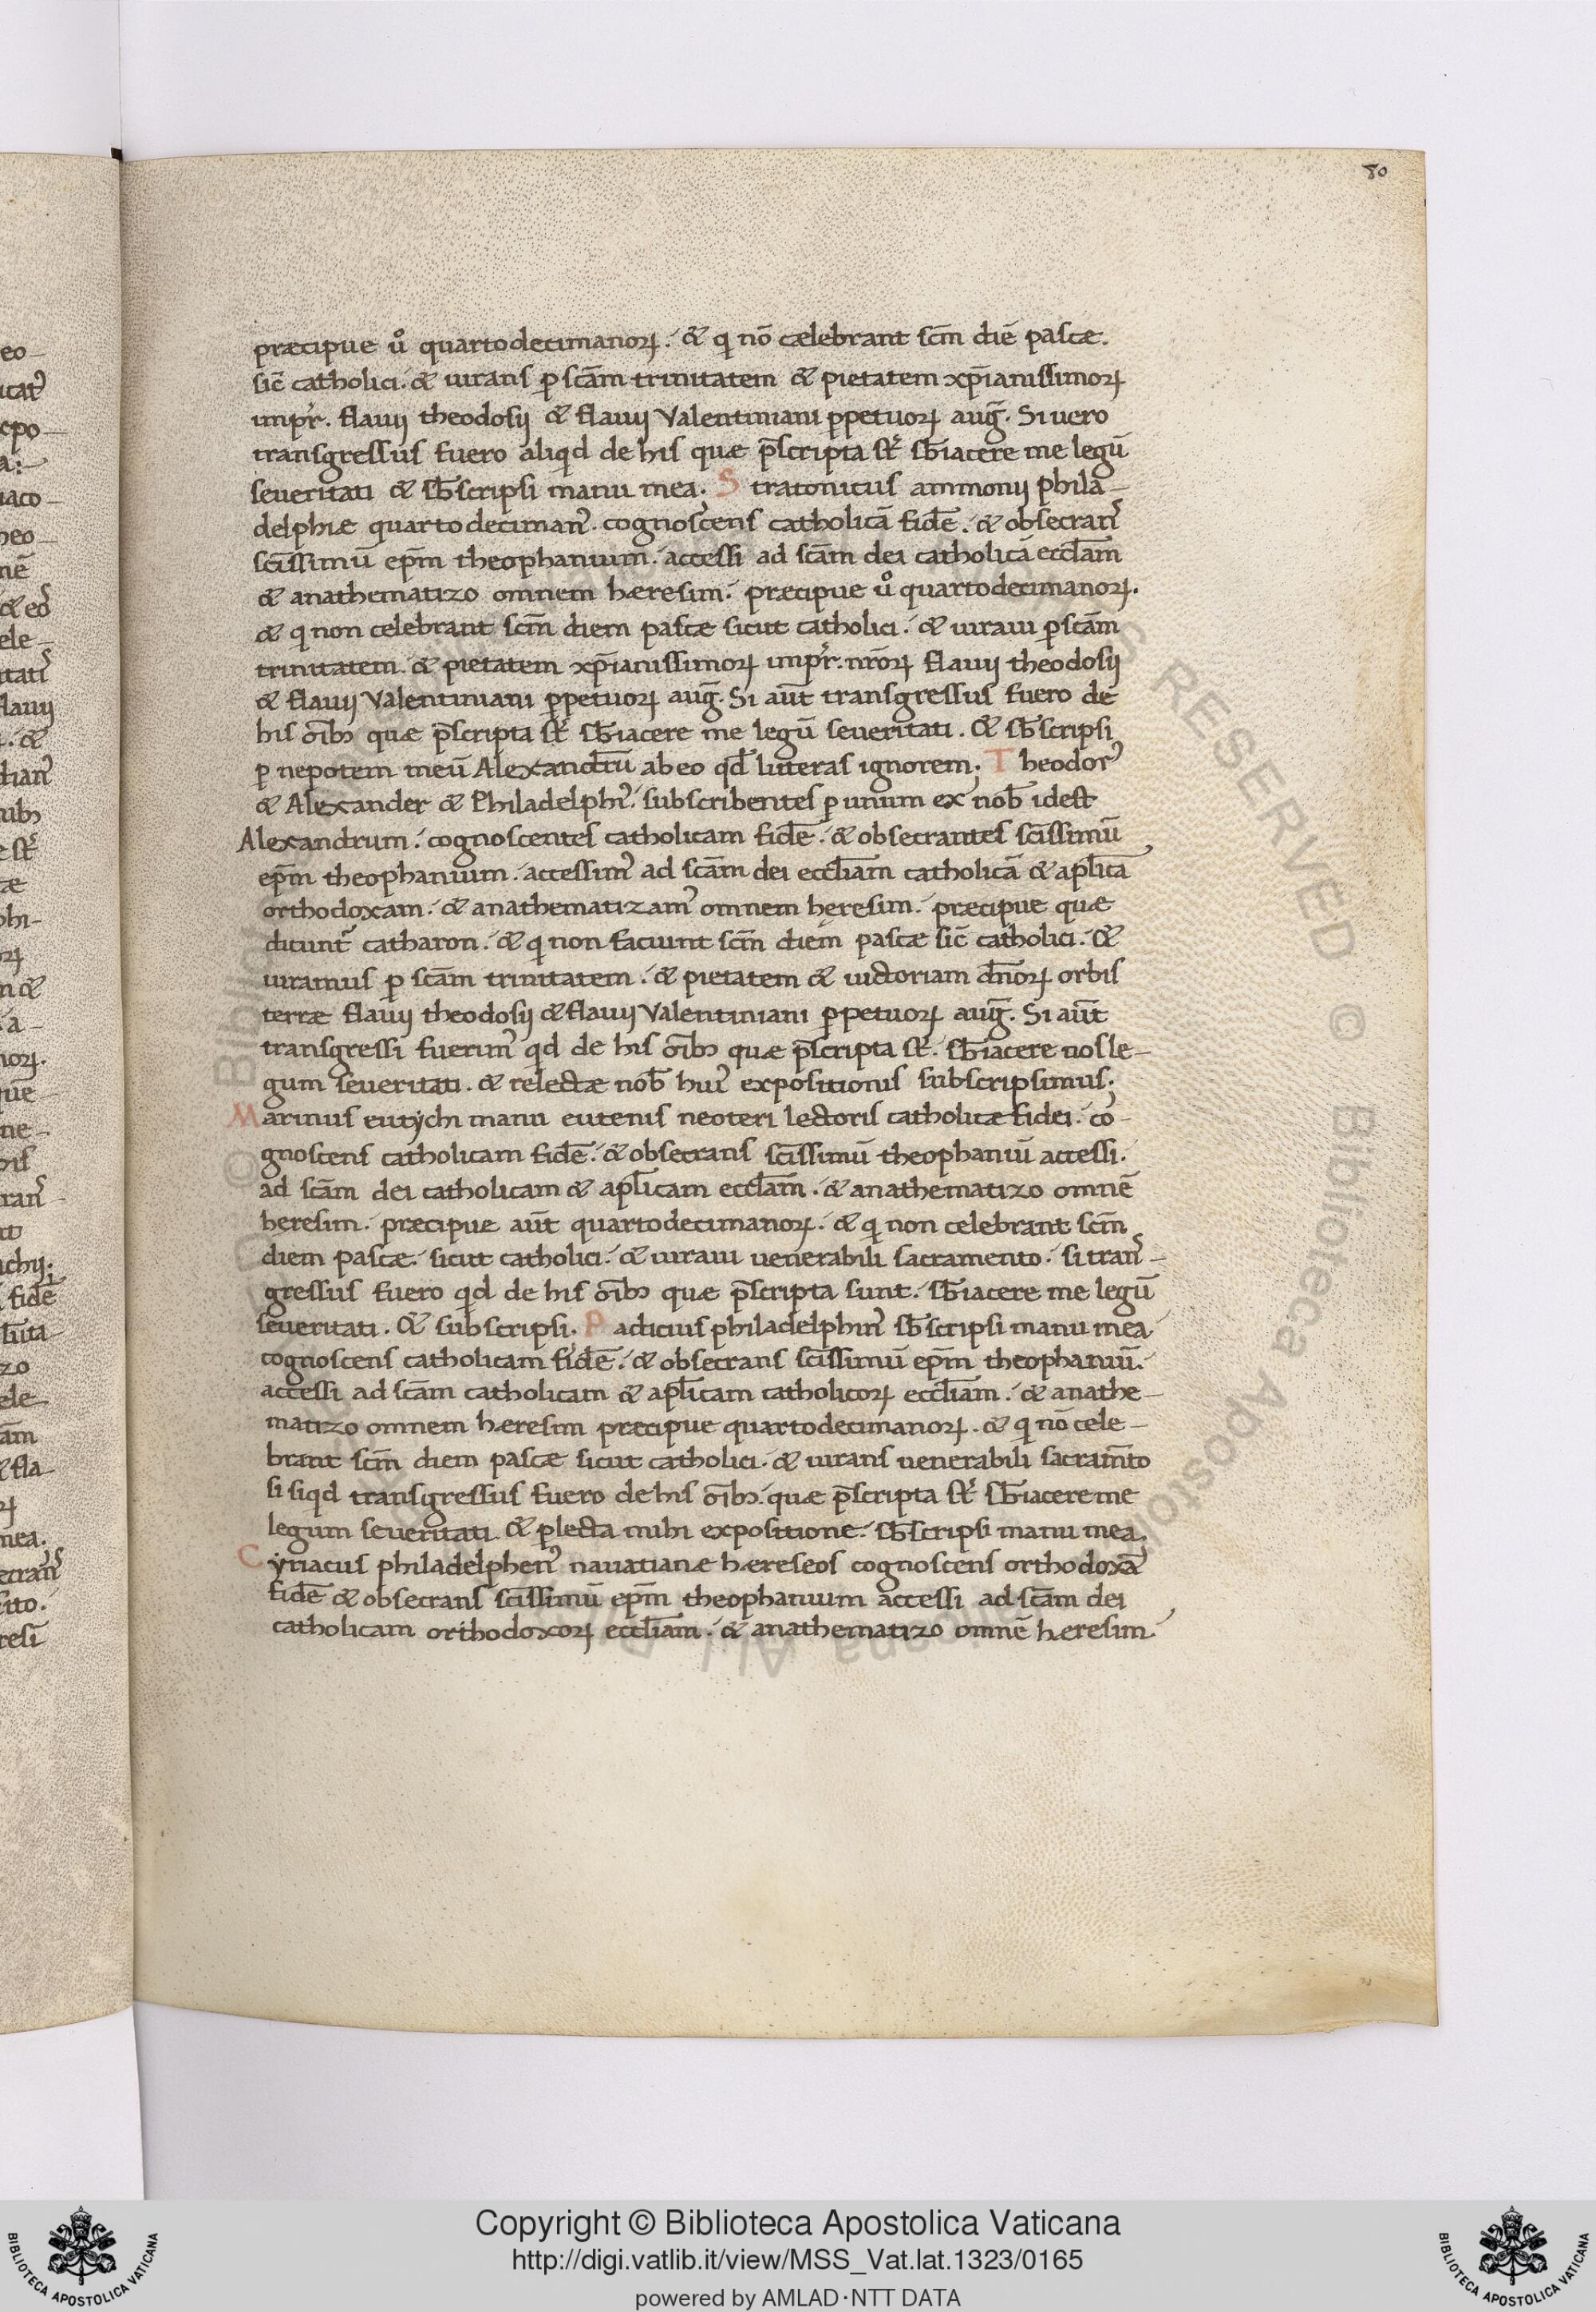 80
præcipue ů quartodecimanoꝝ. & q nō cælebrant scm̄ diē pascæ.
sic̄ catholici. & iurans ꝑ scām trinitatem & pietatem xp̄ianissimoꝝ
imp̄r. flauij theodosij & flauij Valentiniani ꝑpetuoꝝ auḡ. Si uero
transgressus fuero aliqd de his quæ p̄scripta st̄ sb̄iacere me legū
seueritati & sb̄scripsi manu mea. Stratonicus ammonij phila-
delphiæ quartodecimanꝰ. cognoscens catholicā fidē. & obsecranꝰ
scīssimū ep̄m theophanium. accessi ad scām dei catholicā eccl̄am
& anathematizo omnem hæresim. præcipue ů quartodecimanoꝝ.
& q non celebrant scm̄ diem pascæ sicut catholici. & iuraui ꝑ scām
trinitatem. & pietatem xp̄ianissimoꝝ imp̄r. nr̄oꝝ flauij theodosij
& flauij Valentiniani ꝑpetuoꝝ auḡ. Si aūt transgressus fuero de
his oīb; quæ p̄scripta st̄ sb̄iacere me legū seueritati. & sb̄scripsi
ꝑ nepotem meū Alexandrū ab eo qd̄ litteras ignorem. Theodorꝰ
& Alexander & Philadelphꝰ. subscribentes ꝑ unum ex nob̄ idest
Alexandrum. cognoscentes catholicam fidē. & obsecrantes scīssimū
ep̄m theophanium. accessimꝰ ad scām dei eccl̄iam catholicā & apl̄icā
orthodoxam. & anathematizamꝰ omnem hęresim. præcipue quæ
dicunt᷑ catharon. & q non faciunt scm̄ diem pascæ sic̄ catholici. &
iuramus ꝑ scām trinitatem. & pietatem & uictoriam dn̄oꝝ orbis
terræ flauij theodosij & flauij Valentiniani ꝑpetuoꝝ auḡ. Si aūt
transgressi fuerimꝰ qd de his oīb; quæ p̄scripta st̄. sb̄iacere nos le-
gum seueritati. & relectæ nob̄ huiꝰ expositionis subscripsimus.
Marinus eutychi manu eutenis neoteri lectoris catholicæ fidei. co-
gnoscens catholicam fidē. & obsecrans scīssimū theophaniū accessi.
ad scām dei catholicam & apl̄icam eccl̄am. & anathematizo omnē
heresim. præcipue aūt quartodecimanoꝝ. & q non celebrant scm̄
diem pascæ. sicut catholici. & iuraui uenerabili sacramento. si tranꝰ-
gressus fuero qd de his oīb; quæ p̄scripta sunt. sb̄iacere me legū
seueritati. & subscripsi. Padicius philadelphinꝰ sb̄scripsi manu mea
cognoscens catholicam fidē. & obsecrans scīssimū ep̄m theophaniū.
accessi ad scām catholicam & apl̄icam catholicoꝝ eccl̄iam. & anathe-
matizo omnem hæresim præcipue quartodecimanoꝝ. & q nō cele-
brant scm̄ diem pascæ sicut catholici. & iurans uenerabili sacram̄to
si siqd transgressus fuero de his oīb;. quæ p̄scripta st̄ sb̄iacere me
legum seueritati. & ꝑlecta mihi expositione. sb̄scripsi manu mea.
Cyriacus philadelphenꝰ nauatianæ hæreseos cognoscens orthodoxā
fidē & obsecrans scīssimū ep̄m theophanium accessi ad scām dei
catholicam orthodoxoꝝ eccl̄iam. & anathematizo omnē hæresim.
Copyright © Biblioteca Apostolica Vaticana
http://digi.vatlib.it/view/MSS_Vat.lat.1323/0165
powered by AMLAD·NTT DATA